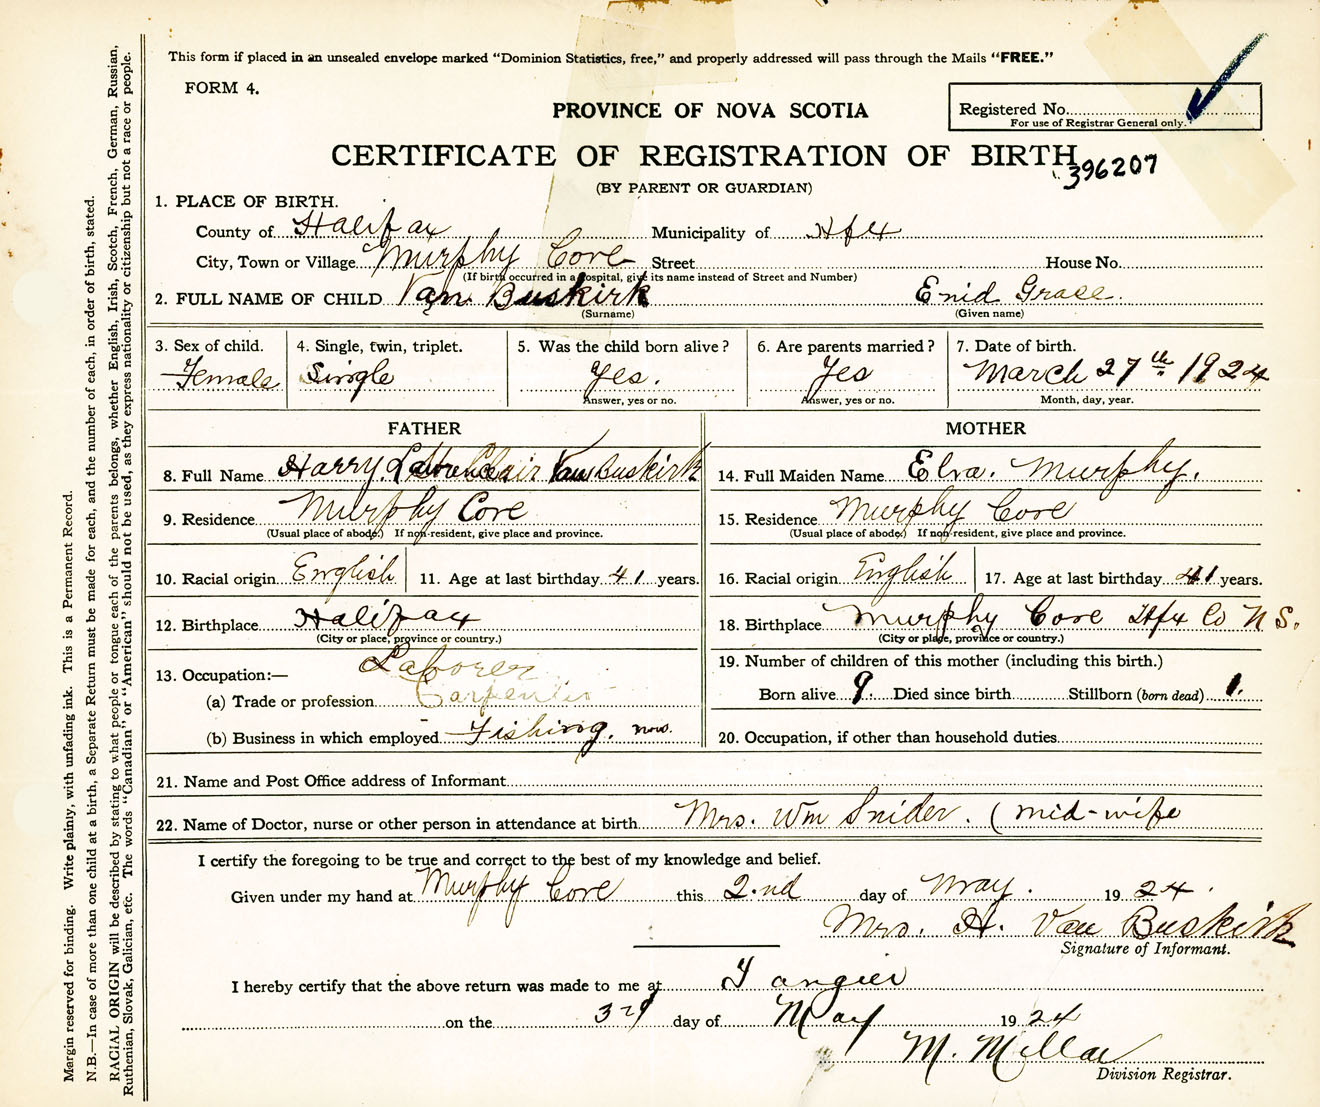 This form if placed in an unsealed envelope marked "Dominion Statistics, free," and properly addressed will pass through the Mails "FREE."
FORM 4.
PROVINCE OF NOVA SCOTIA
Registered No.
For use of Registrar General only.
CERTIFICATE OF REGISTRATION OF BIRTH
396207
(BY PARENT OR GUARDIAN)
1. PLACE OF BIRTH.
County of Halifax Municipality of Hfx
City, Town or Village Murphy Cove Street House No.
(If birth occurred in a hospital, give its name instead of Street and Number)
2. FULL NAME OF CHILD Van Buskirk Enid Grace.
(Surname) (Given name)
3. Sex of child. 4. Single, twin, triplet. 5. Was the child born alive? 6. Are parents married? 7. Date of birth.
Female Single Yes. Yes March 27th 1924
Answer, yes or no. Answer, yes or no. Month, day, year.
FATHER
8. Full Name Harry Van Buskirk
9. Residence Murphy Cove
(Usual place of abode.) If non-resident, give place and province.
10. Racial origin English 11. Age at last birthday 41 years.
12. Birthplace Halifax
(City or place, province or country.)
13. Occupation:— Laborer
(a) Trade or profession Carpenter
(b) Business in which employed Fishing. now.
MOTHER
14. Full Maiden Name Elva. Murphy.
15. Residence Murphy Cove
(Usual place of abode.) If non-resident, give place and province.
16. Racial origin English 17. Age at last birthday 41 years.
18. Birthplace Murphy Cove Hfx Co N S.
(City or place, province or country.)
19. Number of children of this mother (including this birth.)
Born alive 9. Died since birth Stillborn (born dead) 1.
20. Occupation, if other than household duties
21. Name and Post Office address of Informant
22. Name of Doctor, nurse or other person in attendance at birth Mrs. Wm Snider. (mid-wife
I certify the foregoing to be true and correct to the best of my knowledge and belief.
Given under my hand at Murphy Cove this 2nd day of May. 1924.
Mrs. H. Van Buskirk
Signature of Informant.
I hereby certify that the above return was made to me at Tangier
on the 3rd day of May 1924
M. Millar
Division Registrar.
Margin reserved for binding. Write plainly, with unfading ink. This is a Permanent Record.
N.B.—In case of more than one child at a birth, a Separate Return must be made for each, and the number of each, in order of birth, stated.
RACIAL ORIGIN will be described by stating to what people or tongue each of the parents belongs, whether English, Irish, Scotch, French, German, Russian,
Ruthenian, Slovak, Galician, etc. The words "Canadian" or "American" should not be used, as they express nationality or citizenship but not a race or people.